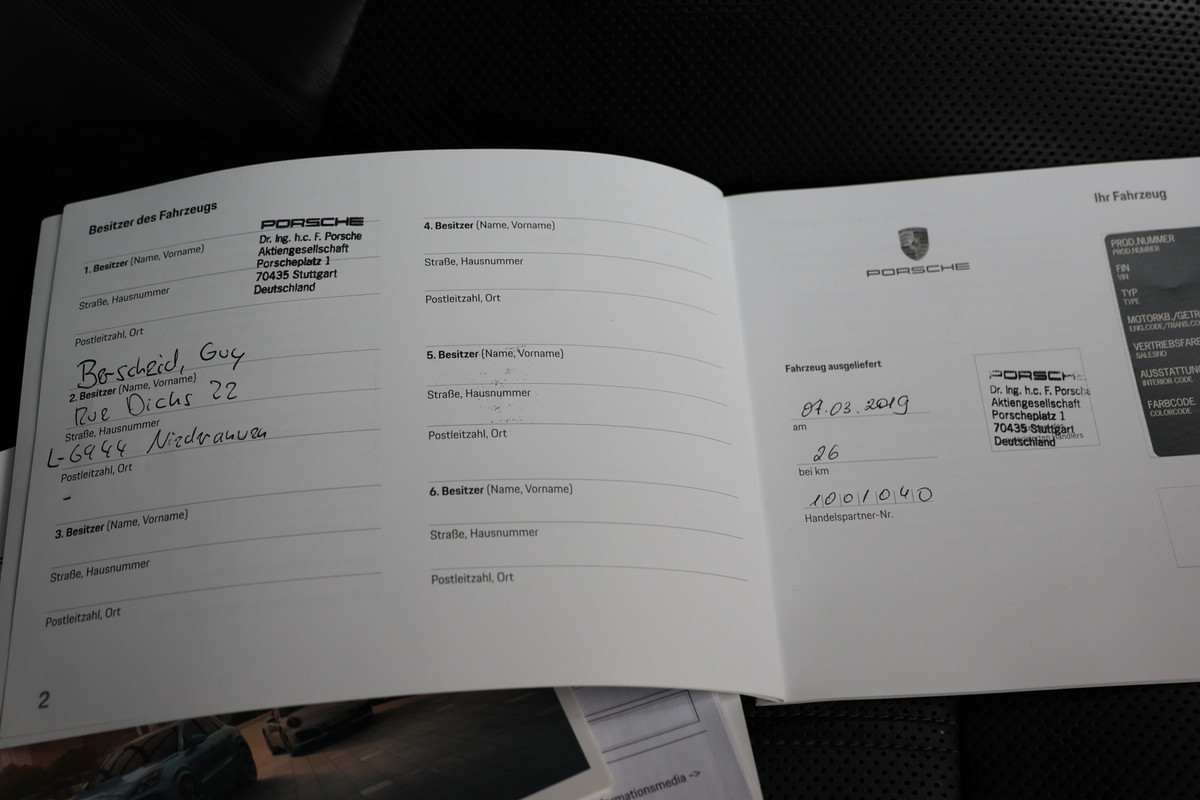 Besitzer des Fahrzeugs
PORSCHE
Dr. Ing. h.c. F. Porsche
Aktiengesellschaft
Porscheplatz 1
70435 Stuttgart
Deutschland
1. Besitzer (Name, Vorname)
Straße, Hausnummer
Postleitzahl, Ort
Berscheid, Guy
2. Besitzer (Name, Vorname)
Rue Dicks 22
Straße, Hausnummer
L-6944 Niederanven
Postleitzahl, Ort
-
3. Besitzer (Name, Vorname)
Straße, Hausnummer
Postleitzahl, Ort
4. Besitzer (Name, Vorname)
Straße, Hausnummer
Postleitzahl, Ort
5. Besitzer (Name, Vorname)
Straße, Hausnummer
Postleitzahl, Ort
6. Besitzer (Name, Vorname)
Straße, Hausnummer
Postleitzahl, Ort
2
Ihr Fahrzeug
PORSCHE
Fahrzeug ausgeliefert
07.03.2019
am
26
bei km
1001040
Handelspartner-Nr.
PORSCHE
Dr. Ing. h.c. F. Porsche
Aktiengesellschaft
Porscheplatz 1
70435 Stuttgart
Deutschland
Händlers
PROD.NUMMER
PROD.NUMBER
FIN
VIN
TYP
TYPE
MOTORKB./GETR
ENG.CODE/TRANS.CO
VERTRIEBSFARE
SALESNO
AUSSTATTUNG
INTERIOR CODE
FARBCODE
COLORCODE
formationsmedia ->